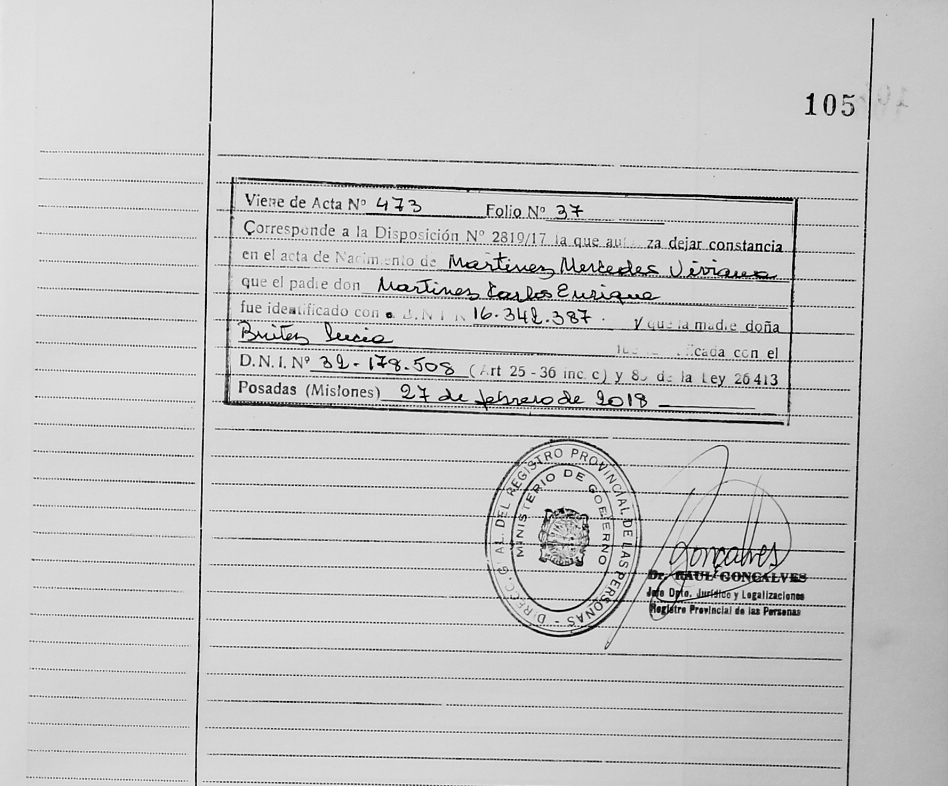 105
Viene de Acta Nº 473 Folio Nº 37
Corresponde a la Disposición Nº 2819/17 la que aut za dejar constancia
en el acta de Nacimiento de Martinez Mercedes Viviana
que el padre don Martinez Carlos Enrique
fue identificado con D.N.I. N 16.342.387. y que la madre doña
Britez Lucia icada con el
D.N.I. Nº 32-178.508 (Art 25 - 36 inc. c) y 85 de la Ley 26413
Posadas (Misiones) 27 de febrero de 2018
DIRECC. G AL. DEL REGISTRO PROVINCIAL DE LAS PERSONAS -
MINISTERIO DE GOBIERNO
Gonçalves
Dr. RAUL GONCALVES
Jefe Dpto. Jurídico y Legalizaciones
Registro Provincial de las Personas